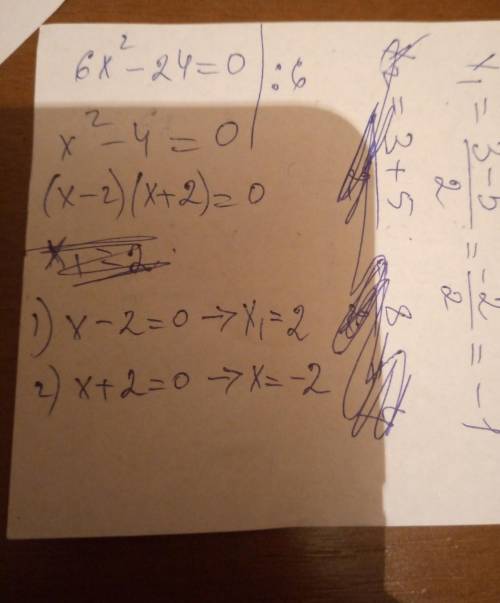 6x² - 24 = 0 | : 6
x² - 4 = 0
(x-2)(x+2) = 0
1) x - 2 = 0 → x₁ = 2
2) x + 2 = 0 → x = -2
x₁ = (3-5)/2 = -2/2 = -1
= 3 + 5
8